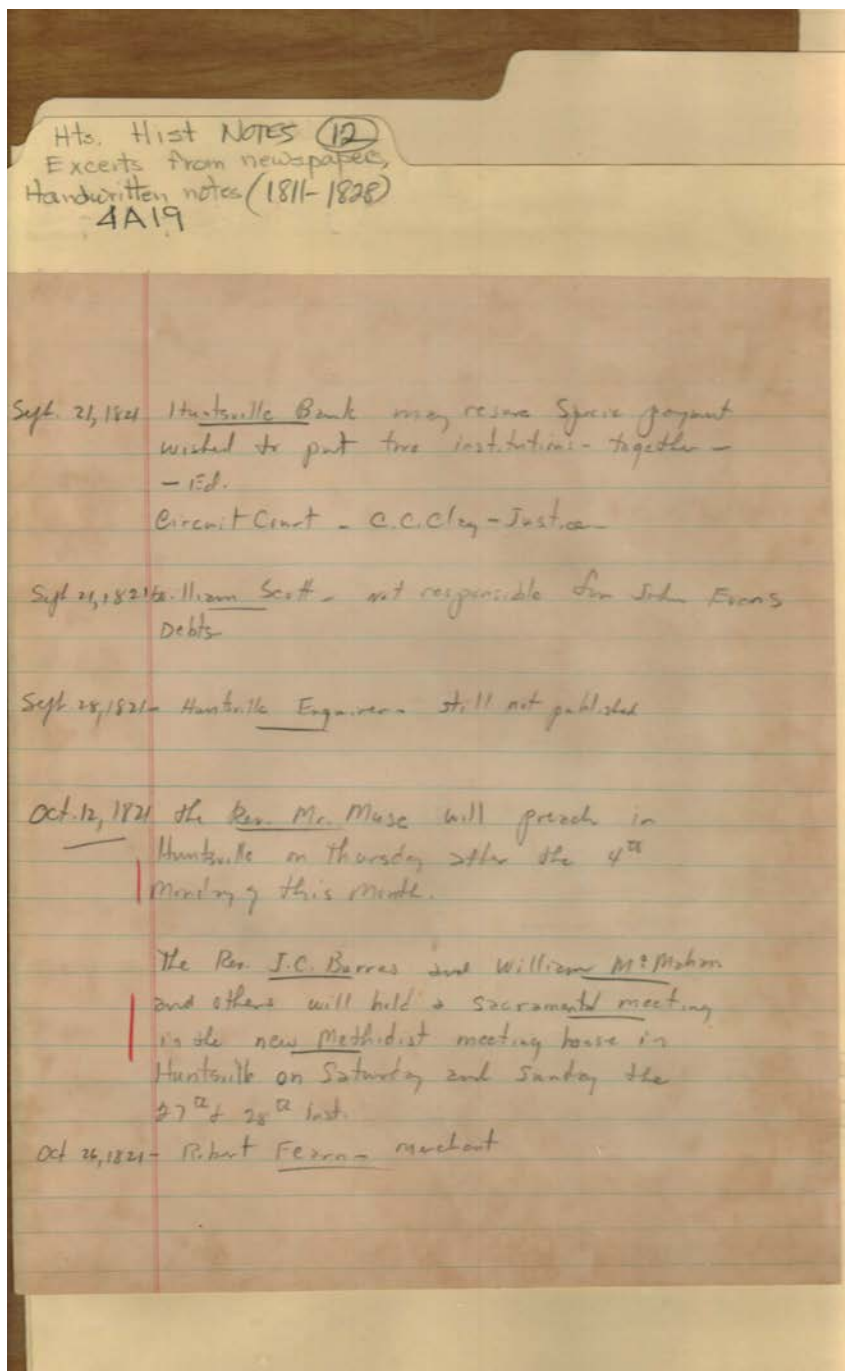 Hts. Hist NOTES (12)
Excerts from newspapers,
Handwritten notes (1811-1828)
4A19
Sept. 21, 1821 Huntsville Bank may resume Specie payment
wished to put two institutions - together -
- Ed.
Circuit Court - C.C. Clay - Justice
Sept 21, 1821 William Scott - not responsible for John Evans
Debts
Sept 28, 1821 - Huntsville Enquirer - still not published
Oct. 12, 1821 the Rev. Mr. Muse will preach in
Huntsville on Thursday after the 4th
Monday of this month.
The Rev. J.C. Burres and William McMahan
and others will hold a sacramental meeting
in the new Methidist meeting house in
Huntsville on Saturday and Sunday the
27th & 28th inst.
Oct 26, 1821 - Robert Fearn - merchant